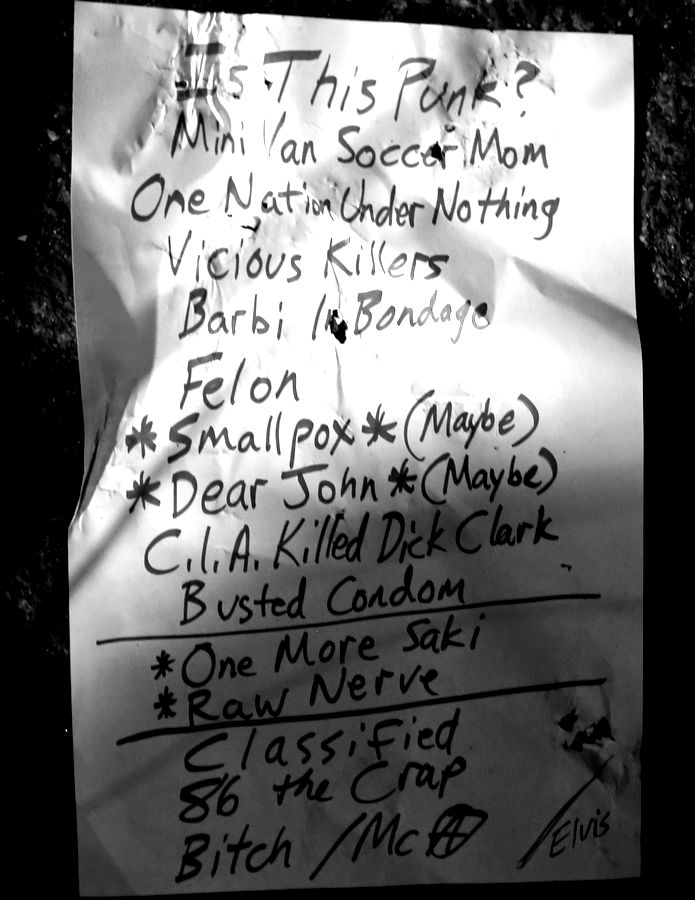 Is This Punk?
Mini Van Soccer Mom
One Nation Under Nothing
Vicious Killers
Barbi In Bondage
Felon
*Smallpox* (Maybe)
*Dear John* (Maybe)
C.I.A. Killed Dick Clark
Busted Condom
*One More Saki
*Raw Nerve
Classified
86 the Crap
Bitch /McA /Elvis